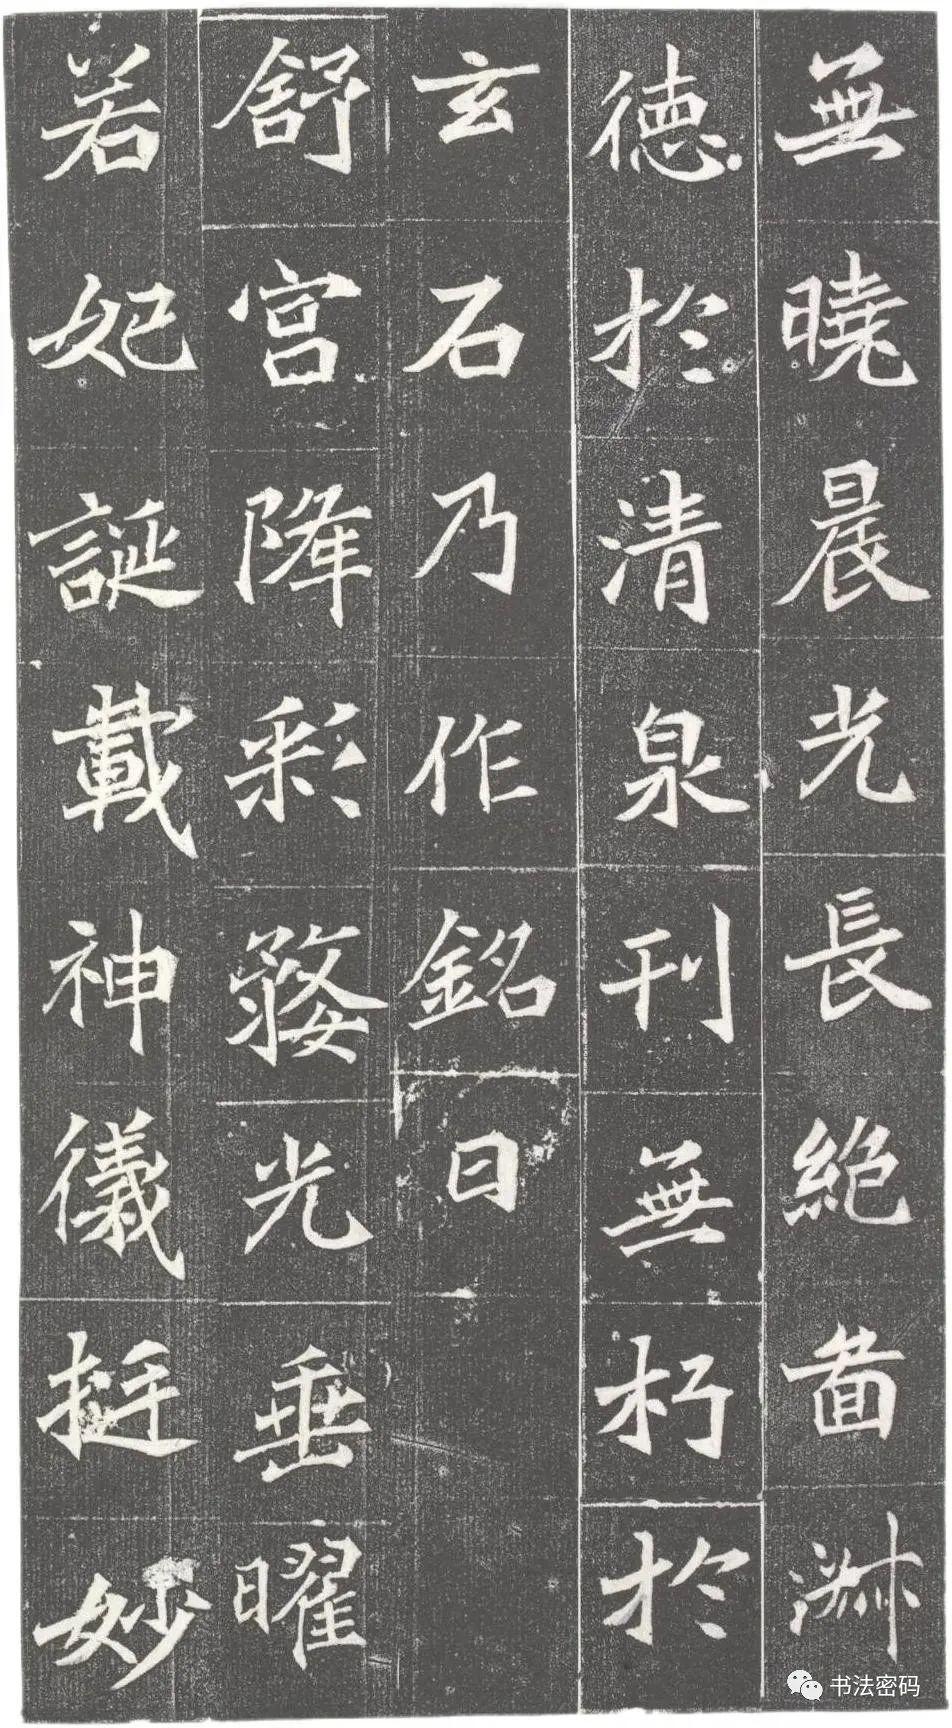 無曉晨光長絕啚淋
德於清泉刊無朽於
玄石乃作銘曰
舒宮降彩婺光垂曜
若妃誕載神儀挺妙
书法密码